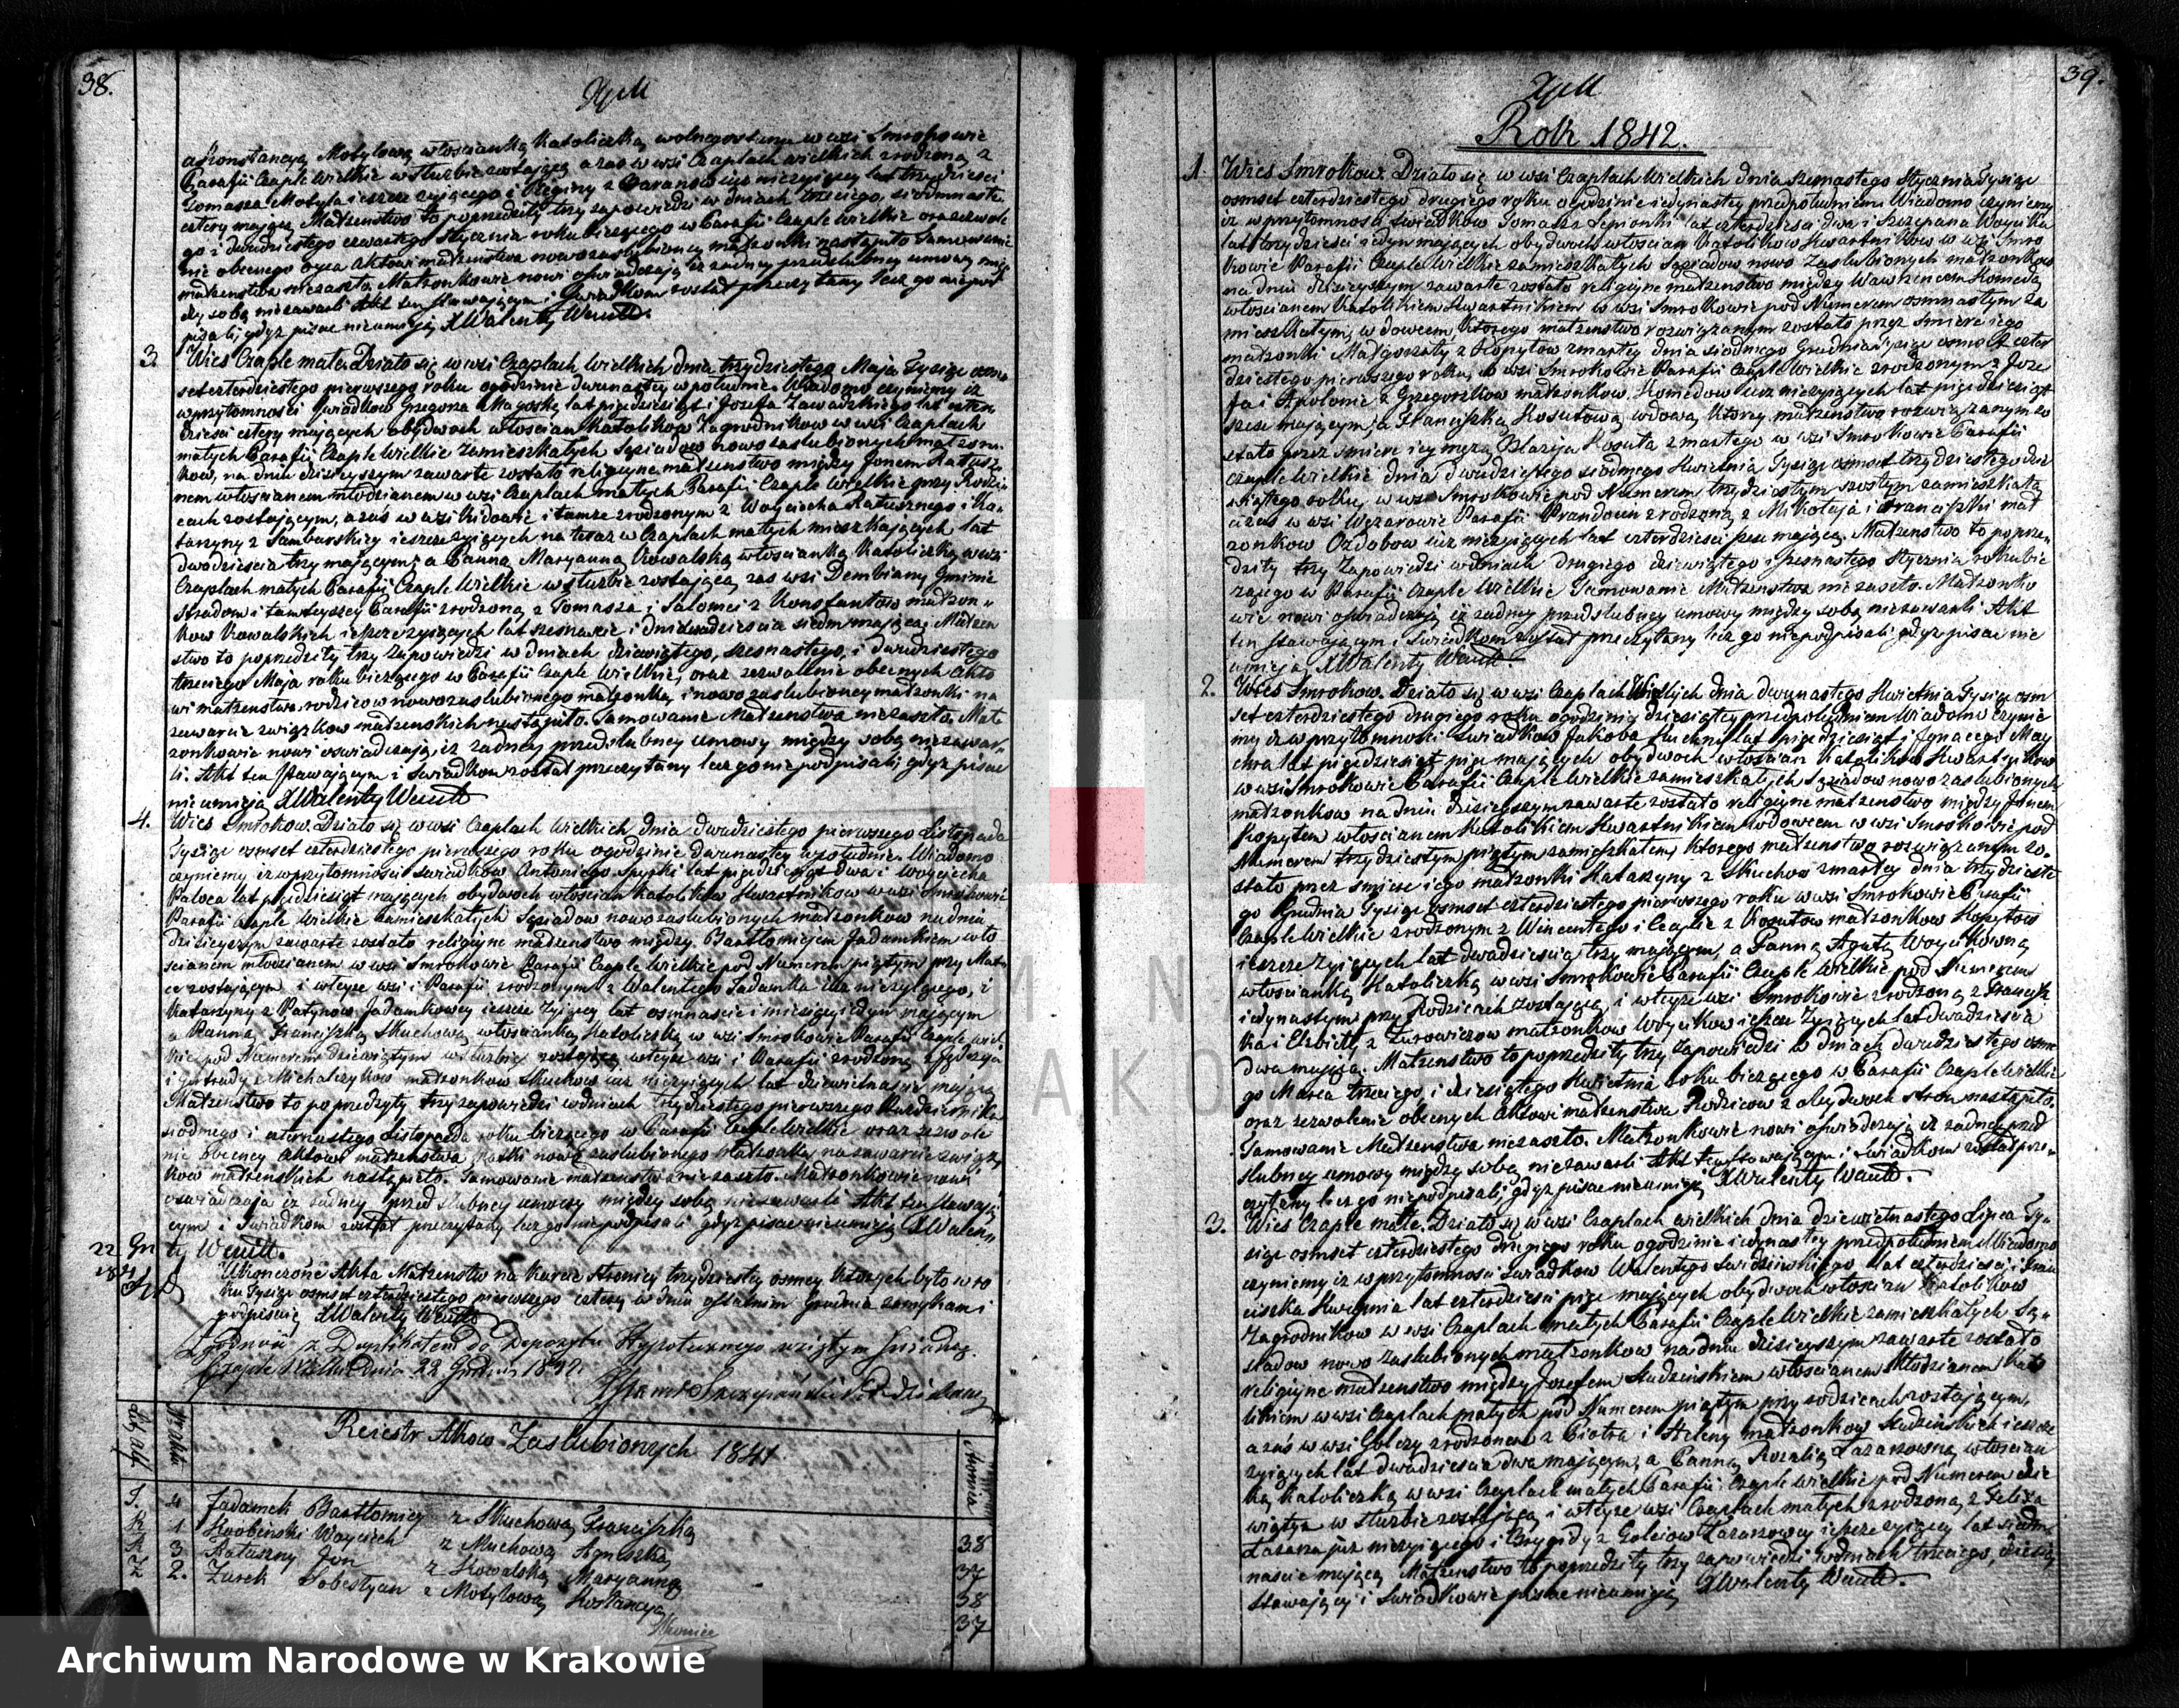 38.
a Konstancyą Motylową włościanką Katoliczką wolnego stanu w wsi Smrokowie
Parafii Czaple Wielkie w służbie zostającą a zaś w wsi Czaplach wielkich zrodzoną z
Tomasza Motyla ieszcze żyiącego i Reginy z Baranow iuż nieżyiącey lat trzydzieści
cztery mającą. Małżenstwo to poprzedziły trzy zapowiedzi w dniach trzeciego, siedmnaste,,
go i dwudziestego czwartego Stycznia roku bieżącego w Parafii Czaple Wielkie oraz zezwole
nie obecnego oyca Aktowi małżenstwa nowozaslubioney małżonki nastąpiło Tamowanie
małżenstwa niezaszło. Małżonkowie nowi oświadczają iż żadney przedslubney umowy mię
dzy sobą niezawarli Akt ten stawaiącym i Swiadkom został przeczytany lecz go niepod
pisali gdyż pisac nieumieją X Walenty Weucht.
3. Wies Czaple małe. Działo się w wsi Czaplach Wielkich dnia trzydziestego Maja Tysiąc osm,,
set czterdziestego pierwszego roku ogodzinie dwunastey w południe. Wiadomo czyniemy iż
w przytomności Swiadkow Grzegorza Magoskę lat pięcdziesiąt i Jozefa Zawadzkiego lat czter,,
dzieści cztery maiących obydwoch włościan Katolikow Zagrodnikow w wsi Czaplach
małych Parafii Czaple Wielkie zamieszkałych Sąsiadow nowozaslubionych małżon,,
kow, na dniu dzisieyszym zawarte zostało religiyne małżenstwo między Janem Ratusz,,
nem włościanem młodzianem w wsi Czaplach małych Parafii Czaple Wielkie przy Rodzi,,
cach zostającym, a zaś w wsi Widowie i tamże zrodzonym z Woyciecha Ratusznego i Ka,,
tarzyny z Samborskiey ieszcze żyiących na teraz w Czaplach małych mieszkających, lat
dwadzieścia trzy mającym; a Panną Maryanną Kowalską włościanką Katoliczką w wsi
Czaplach małych Parafii Czaple Wielkie w służbie zostającą, zaś wsi Dembiany Gminie
Stradow i tamteyszey Parafii zrodzoną z Tomasza i Salomei z Konstantow małżon,,
kow Kowalskich ieszcze żyiących lat szesnaście i dni dwadzieścia siedm mającą; Małżen
stwo to poprzedziły trzy Zapowiedzi w dniach dziewiątego, szesnastego, i dwudziestego
trzeciego Maja roku bieżącego w Parafii Czaple Wielkie, oraz zezwolenie obecnych Akto
wi małżenstwa rodzicow nowozaslubionego małżonka, i nowozaslubioney małżonki na
zawarcie związkow małżenskich nastąpiło. Tamowanie Małżenstwa niezaszło. Mał
żonkowie nowi oświadczają iż żadney przedślubney umowy między sobą niezawar,,
li. Akt ten stawaiącym i Swiadkom został przeczytany lecz go niepodpisali gdyż pisac
nieumieją X Walenty Weucht
4. Wies Smrokow. Działo się w wsi Czaplach Wielkich dnia dwudziestego pierwszego Listopada
Tysiąc osmset czterdziestego pierwszego roku ogodzinie dwunastey w południe. Wiadomo
czyniemy iż w przytomności swiadkow Antoniego Spyrki lat pięcdziesiąt dwa i Woyciecha
Palocą lat pięcdziesiąt maiących obydwoch włościan Katolikow Kwartnikow w wsi Smrokowie
Parafii Czaple wielkie zamieszkałych Sąsiadow nowozaslubionych małżonkow na dniu
dzisieyszym zawarte zostało religiyne małżenstwo między Bartłomiejem Jadamkiem wło
ścianem młodzianem w wsi Smrokowie Parafii Czaple Wielkie pod Numerem piątym przy Mat,,
ce zostającym i wteyże wsi i Parafii zrodzonym z Walentego Jadamka iuż nieżyiącego, i
Katarzyny z Patynow Jadamkowey ieszcze żyiącey lat osmnaście i miesięcy ieden maiącym
a Panną Franciszką Skuchową włościanką Katoliczką w wsi Smrokowie Parafii Czaple wiel
kie pod Numerem dziewiątym w służbie zostającą wteyże wsi i Parafii zrodzoną z Jędrzeja
i Gertrudy z Michalczykow małżonkow Skuchow iuż nieżyiących lat dziewietnaście mającą.
Małżenstwo to poprzedziły trzy zapowiedzi w dniach trzydziestego pierwszego Pazdziernika
siodmego i czternastego Listopada roku bieżącego w Parafii Czaple Wielkie oraz zezwole
nie obecney Aktowi małżenstwa Matki nowo zaslubionego Małżonka na zawarcie związ,,
kow małżenskich nastąpiło. Tamowanie małżenstwa niezaszło. Małżonkowie nowi
oswiadczają iż żadney przed slubney umowy między sobą niezawarli Akt ten stawaią
cym i Swiadkom został przeczytany lecz go niepodpisali gdyż pisac nieumieją X Walen,,
ty Weucht.
Ukonczone Akta Małżenstw na karcie stronicy trzydziestey osmey których było w ro
ku Tysiąc osmset czterdziestego pierwszego cztery w dniu ostatnim Grudnia zamykam i
podpisuię X Walenty Weucht
Zgodność z Duplikatem do Depozytu Hypotecznego wziętym świadczę.
Czaple Wielkie dnia 22 Grudnia 1842.
Reiestr Aktow Zaslubionych 1841
Stronica
J. 4 Jadamek Bartłomiey z Skuchową Franciszką 38
K 1. Knobenski Woyciech z Muchową Agnieszką 37
R 3 Ratuszny Jan z Kowalską Maryanną 38
Z 2. Zurek Sobestyan z Motylową Kostancyą 37
39.
Rok 1842.
1. Wies Smrokow. Działo się w wsi Czaplach Wielkich dnia szesnastego Stycznia Tysiąc
osmset czterdziestego drugiego roku ogodzinie iedynastey przedpołudniem Wiadomo czyniemy
iż w przytomności swiadkow Tomasza Sepionki lat czterdzieści dwa i Szczepana Woycika
lat trzydzieści ieden maiących obydwoch włościan Katolikow Kwartnikow w wsi Smro
kowie Parafii Czaple Wielkie zamieszkałych Sąsiadow nowo Zaslubionych małżonkow
na dniu dzisieyszym zawarte zostało religiyne małżenstwo między Wawrzencem Komedą
włościanem Katolikiem Kwartnikiem w wsi Smrokowie pod Numerem osmnastym za
mieszkałym, wdowcem, ktorego małżenstwo rozwiązanym zostało przez śmierć iego
małżonki Małgorzaty z Kopytow zmarłey dnia siodmego Grudnia Tysiąc osmset czter
dziestego pierwszego roku, w wsi Smrokowie Parafii Czaple Wielkie zrodzonym z Joze
fa i Apolonii z Grzegorzkow małżonkow Komedow iuż nieżyiących lat pięcdziesiąt
sześć mającym; a Franciszką Kosutową wdową ktorey małżenstwo rozwiązanym zo
stało przez śmierć iey męża Błażeja Kosuta zmarłego w wsi Smrokowie Parafii
Czaple Wielkie dnia dwudziestego siodmego Kwietnia Tysiąc osmset trzydziestego dzie
wiątego roku, w wsi Smrokowie pod Numerem trzydziestym szostym zamieszkałą
a zaś w wsi Węzerowie Parafii Prandocin zrodzoną z Mikołaja i Franciszki mał
żonkow Ozdobow iuż nieżyiących lat czterdzieści mającą. Małżenstwo to poprze,,
dziły trzy Zapowiedzi w dniach drugiego dziewiątego i szesnastego Stycznia roku bie
żącego w Parafii Czaple Wielkie Tamowanie Małżenstwa niezaszło. Małżonko
wie nowi oswiadczają iż żadney przedslubney umowy między sobą niezawarli Akt
ten stawaiącym i Swiadkom został przeczytany lecz go niepodpisali gdyż pisac nie
umieją X Walenty Weucht
2. Wies Smrokow. Działo się w wsi Czaplach Wielkich dnia dwunastego Kwietnia Tysiąc osm
set czterdziestego drugiego roku ogodzinie dziesiątey przedpołudniem Wiadomo czynie
my iż w przytomności Swiadkow Jakoba Kuchny lat pięcdziesiąt i Ignacego May
chra lat pięcdziesiąt pięc maiących obydwoch włościan Katolikow Kwartnikow
w wsi Smrokowie Parafii Czaple Wielkie zamieszkałych Sąsiadow nowozaslubionych
małżonkow na dniu dzisieyszym zawarte zostało religiyne małżenstwo między Janem
Kopytem włościanem Katolikiem Kwartnikiem wdowcem w wsi Smrokowie pod
Numerem trzydziestym piątym zamieszkałem, ktorego małżenstwo rozwiązanym zo,,
stało przez śmierć iego małżonki Katarzyny z Skuchow zmarłey dnia trzydzieste
go Grudnia Tysiąc osmset czterdziestego pierwszego roku w wsi Smrokowie Parafii
Czaple Wielkie zrodzonym z Wincentego i Cecylie z Kosutow małżonkow Kopytow
ieszcze żyiących lat dwadzieścia trzy mającym, a Panną Agatą Woycikowną
włościanką Katoliczką w wsi Smrokowie Parafii Czaple Wielkie pod Numerem
iedynastym przy Rodzicach zostającą i wteyże wsi Smrokowie zrodzoną z Francisz
ka i Elżbiety z Zurowiczow małżonkow Woycikow ieszcze żyiących lat dwadzieścia
dwa mającą. Małżenstwo to poprzedziły trzy Zapowiedzi w dniach dwudziestego osme
go Marca trzeciego, i dziesiątego Kwietnia roku bieżącego w Parafii Czaple Wielkie
oraz zezwolenie obecnych Aktowi małżenstwa Rodzicow z obydwoch stron nastąpiło.
Tamowanie Małżenstwa niezaszło. Małżonkowie nowi oswiadczają iż żadney przed
slubney umowy między sobą niezawarli Akt ten stawaiącym i swiadkom został prze,,
czytany lecz go niepodpisali gdyż pisac nieumieją X Walenty Weucht.
3. Wies Czaple małe. Działo się w wsi Czaplach wielkich dnia dziewietnastego Lipca Ty,,
siąc osmset czterdziestego drugiego roku ogodzinie iedynastey przedpołudniem Wiadomo
czyniemy iż w przytomności Swiadkow Walentego Swidzinskiego lat czterdzieści i Fran
ciszka Kwapnia lat czterdzieści pięc maiących obydwoch włościan Katolikow
Zagrodnikow w wsi Czaplach małych Parafii Czaple Wielkie zamieszkałych Są,,
siadow nowo Zaslubionych małżonkow na dniu dzisieyszym zawarte zostało
religiyne małżenstwo między Jozefem Studzinskiem włościanem Młodzianem Kato
likiem w wsi Czaplach małych pod Numerem piątym przy rodzicach zostającym,
a zaś w wsi Golczy zrodzonem z Piotra i Heleny małżonkow Studzinskich ieszcze
żyiących lat dwadzieścia dwa mającym; a Panną Rozalią Łazarzowną włościan
ką Katoliczką w wsi Czaplach małych Parafii Czaple Wielkie pod Numerem dzie
wiątym w służbie zostającą i wteyże wsi Czaplach małych zrodzoną z Felixa
Łazarza już nieżyiącego i Brygidy z Golciow Łazarzowey ieszcze żyiącey lat siedm,,
naście mającą Małżenstwo to poprzedziły trzy zapowiedzi w dniach trzeciego, dziesią
stawaiący i Swiadkowie pisac nieumieją X Walenty Weucht.
Archiwum Narodowe w Krakowie